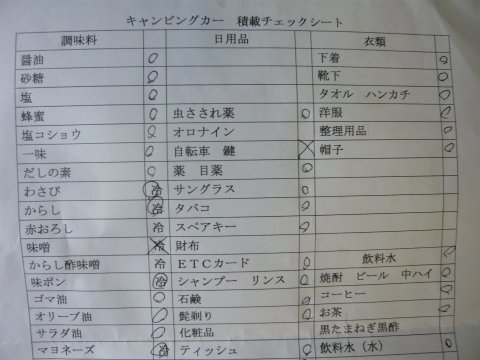 キャンピングカー 積載チェックシート
調味料 日用品 衣類
醤油 下着
砂糖 靴下
塩 タオル ハンカチ
蜂蜜 虫さされ薬 洋服
塩コショウ オロナイン 整理用品
一味 自転車 鍵 帽子
だしの素 薬 目薬
わさび 冷 サングラス
からし 冷 タバコ
赤おろし 冷 スペアキー
味噌 冷 財布
からし酢味噌 冷 ETCカード 飲料水
味ポン 冷 シャンプー リンス 焼酎 ビール 中ハイ
ゴマ油 石鹸 コーヒー
オリーブ油 髭剃り お茶
サラダ油 化粧品 黒たまねぎ黒酢
マヨネーズ 冷 ティッシュ 飲料水(水)